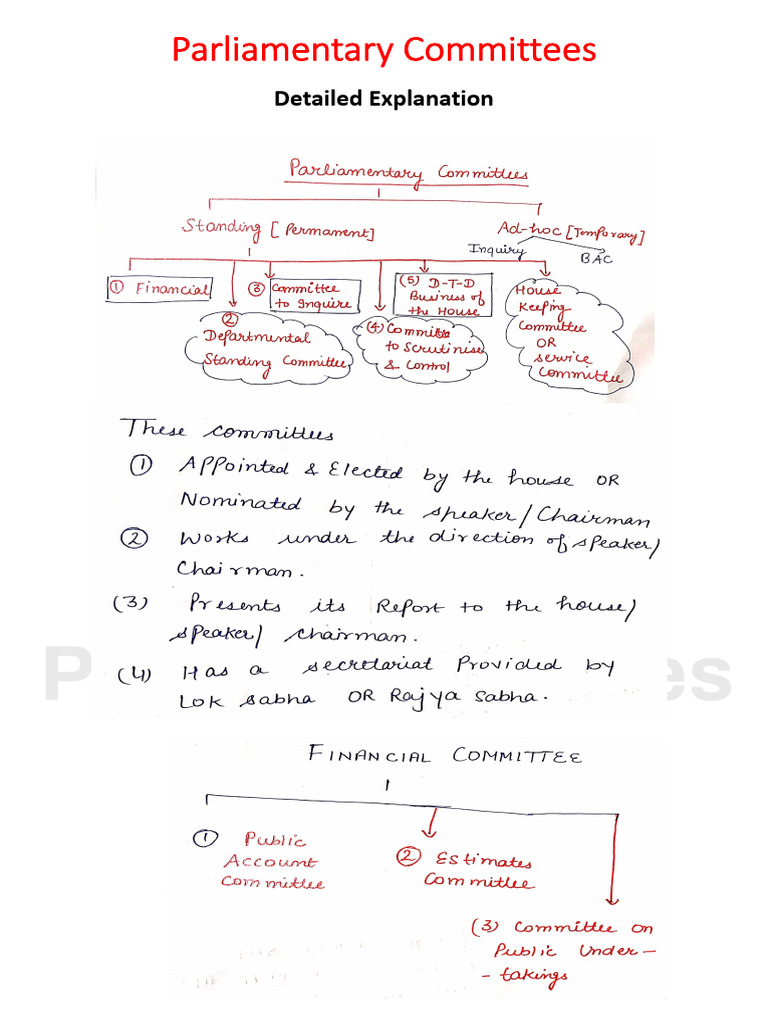 Parliamentary Committees
Detailed Explanation
Parliamentary Committees
Standing [Permanent]
Ad-hoc [Temporary]
Inquiry
BAC
① Financial
②
Departmental
Standing Committee
③ Committee
to Inquire
(4) Committee
to Scrutinise
& Control
(5) D-T-D
Business of
the House
House
Keeping
Committee
OR
Service
Committee
These committees
① Appointed & Elected by the house OR
Nominated by the speaker/Chairman
② Works under the direction of speaker/
Chairman.
(3) Presents its Report to the house/
speaker/ chairman.
(4) Has a secretariat Provided by
Lok Sabha OR Rajya Sabha.
FINANCIAL COMMITTEE
① Public
Account
Committee
② Estimates
Committee
(3) Committee on
Public Under-
-takings